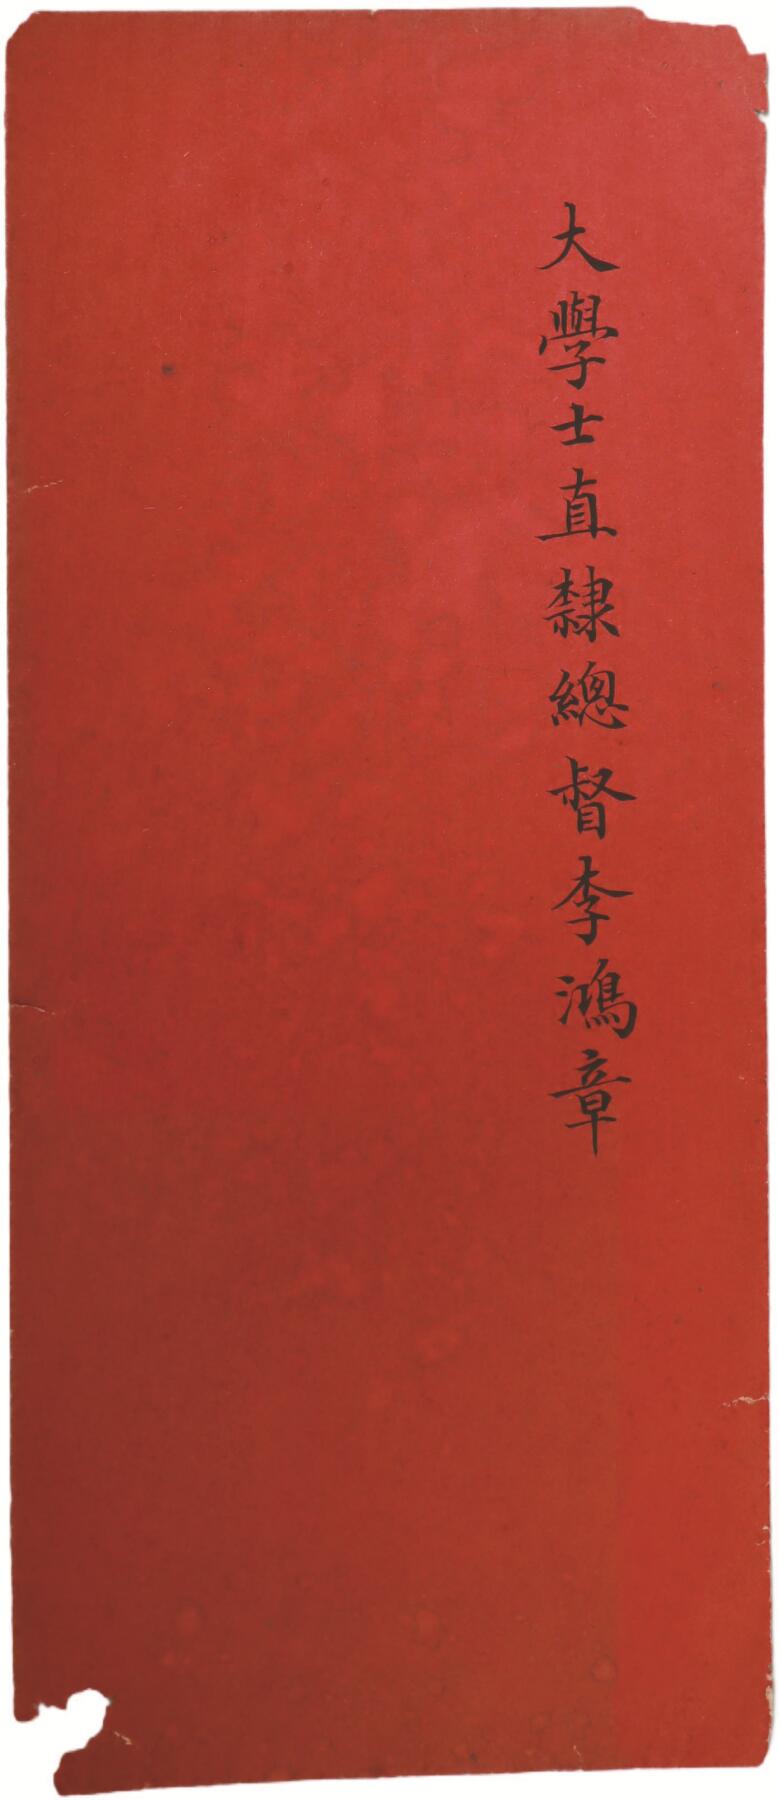 大學士直隸總督李鴻章